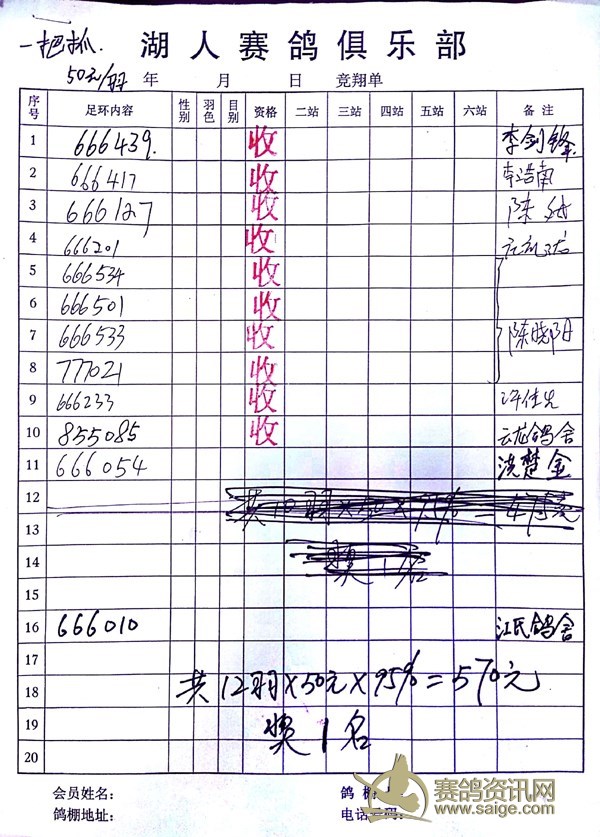 一把抓.
湖人赛鸽俱乐部
50元/羽 年 月 日 竞翔单
序号 足环内容 性别 羽色 目别 资格 二站 三站 四站 五站 六站 备注
1 666439. 收 李剑锋.
2 666417 收 李浩南
3 666127 收 陈
4 666201 收
5 666534 收
6 666501 收
7 666533 收 陈晓阳
8 777021 收
9 666233 收 许佳
10 855085 收 云龙鸽舍
11 666054 洗楚金
12 共10羽×50×95%=475元
13
14 奖1名
15
16 666010 江氏鸽舍
17
18 共12羽×50元×95%=570元
19 奖1名
20
会员姓名: 鸽棚
鸽棚地址: 电话号码:
赛鸽资讯网
www.saige.com